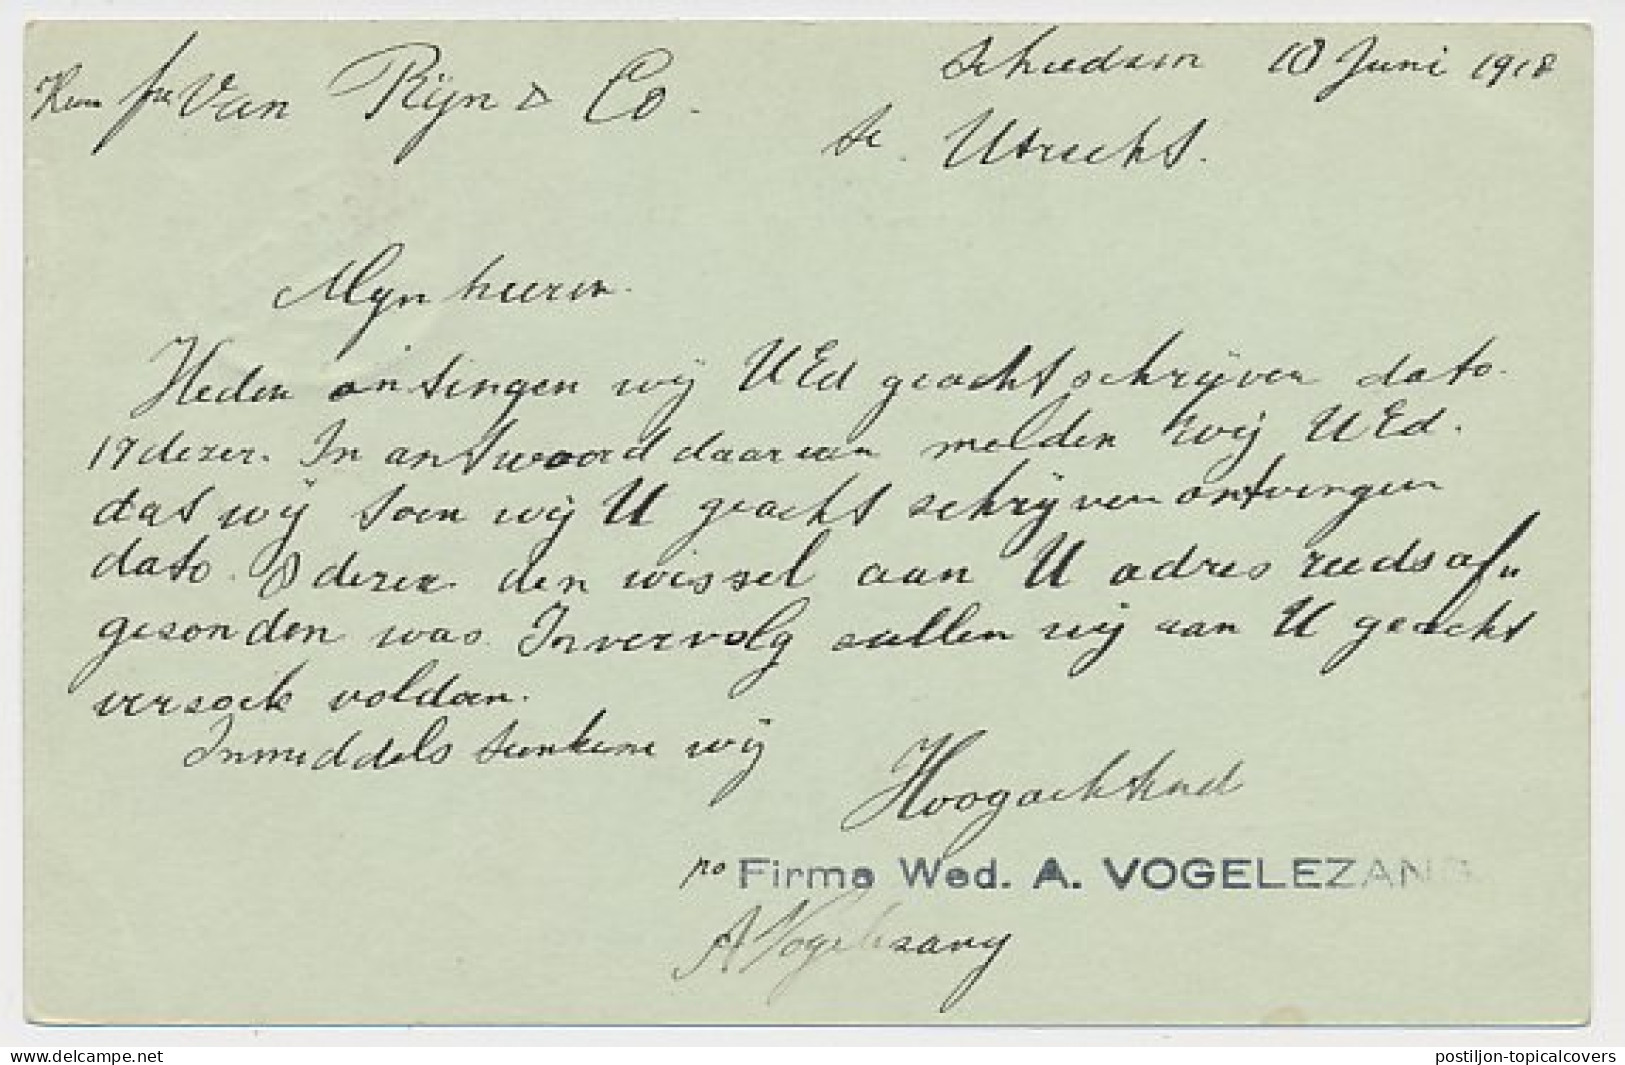 Schiedam 18 Juni 1918
Heeren fa Van Rijn & Co.
te. Utrecht.
Mijnheeren.
Heden ontfingen wij UEd geacht schrijven dato.
17 dezer. In antwoord daarvan melden wij UEd.
dat wij toen wij U geacht schrijven ontvingen
dato. dezer den wissel aan U adres reeds af
gezonden was. Invervolg sullen wij aan U geacht
versoek voldoen.
Inmiddels teekene wij
Hoogachtend
po Firma Wed. A. VOGELEZANG
A Vogelezang
delcampe.net
postiljon-topicalcovers